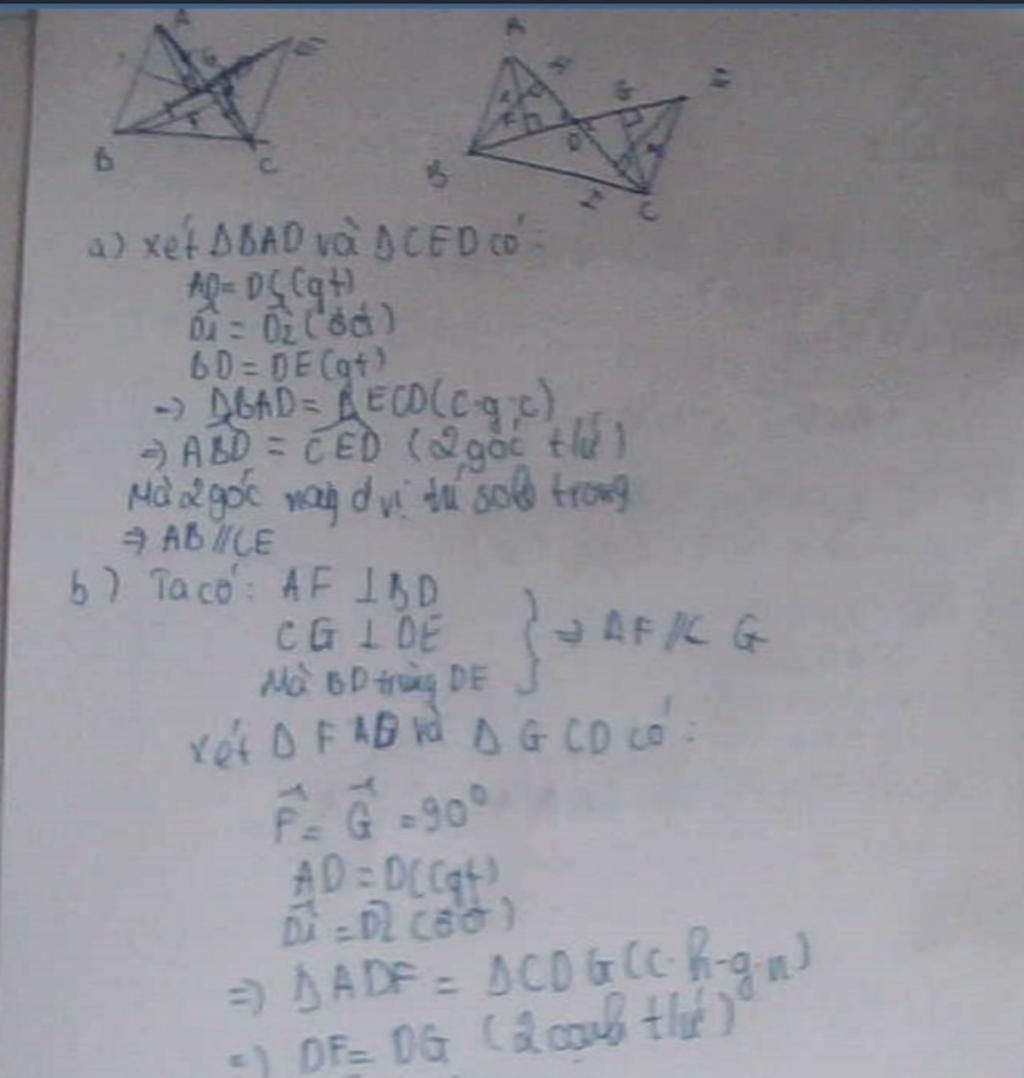 A
B
C
A
G
E
B
D
I
C
a) xét ΔBAD và ΔCED có:
AD = DC (gt)
D̂1 = D̂2 (đđ)
BD = DE (gt)
=> ΔBAD = ΔECD (c.g.c)
=> ABD = CED (2 góc tứ)
Mà 2 góc này ở vị trí sole trong
=> AB // CE
b) Ta có: AF ⊥ BD
CG ⊥ DE
Mà BD trùng DE
=> AF // C G
xét Δ FAD và Δ GCD có:
F̂ = Ĝ = 90⁰
AD = DC (gt)
D̂1 = D̂2 (đđ)
=> ΔADF = ΔCDG (c.h-g.n)
=> DF = DG (2 cạnh tứ)